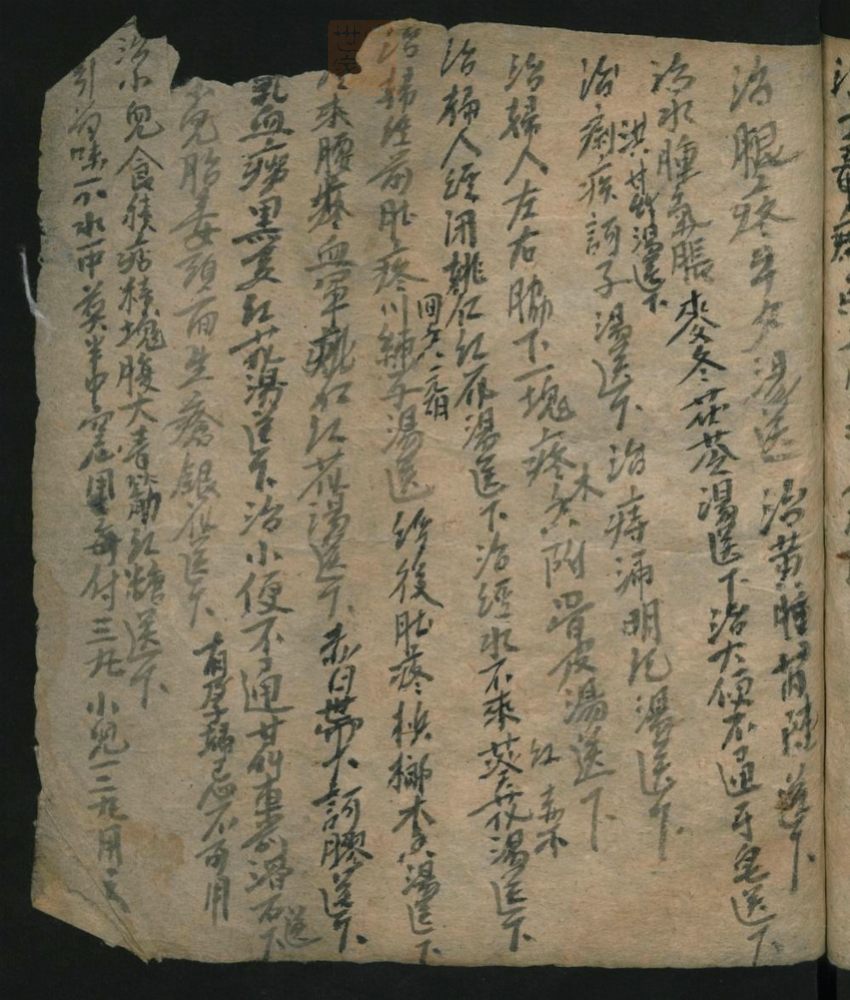 治腿疼牛夕湯送 治黄腫茵陳送下
治水腫氣脹麥冬茯苓湯送下治大便不通牙皂送下
洪甘草湯送下
治痢疾訶子湯送下治痔漏明凡湯送下
治婦人左右脇下一塊疼木香附骨皮湯送下
治婦人經閉桃仁红花湯送下治經水不來葵花湯送下
回六七个月
红赤不
治婦經前肚疼川練子湯送 經後肚疼檳榔木香湯送下
來腰疼血軍桃仁红花湯送下 赤白帶下訶膠送下
乳血癆黑豆红花湯送下治小便不通甘草車前滑石送下
小兒胎毒頭面生瘡銀花送下 有孕婦忌不可用
治小兒食積病積塊腹大青筋红糖送下
引為味一不水中莫半中 用每付三九 小兒一二九用